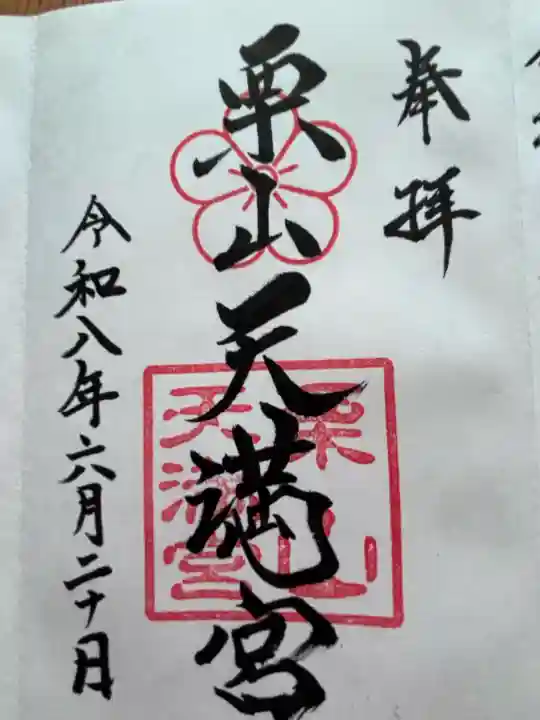 奉拝
栗山天満宮
令和八年六月二十日
栗山
天満宮